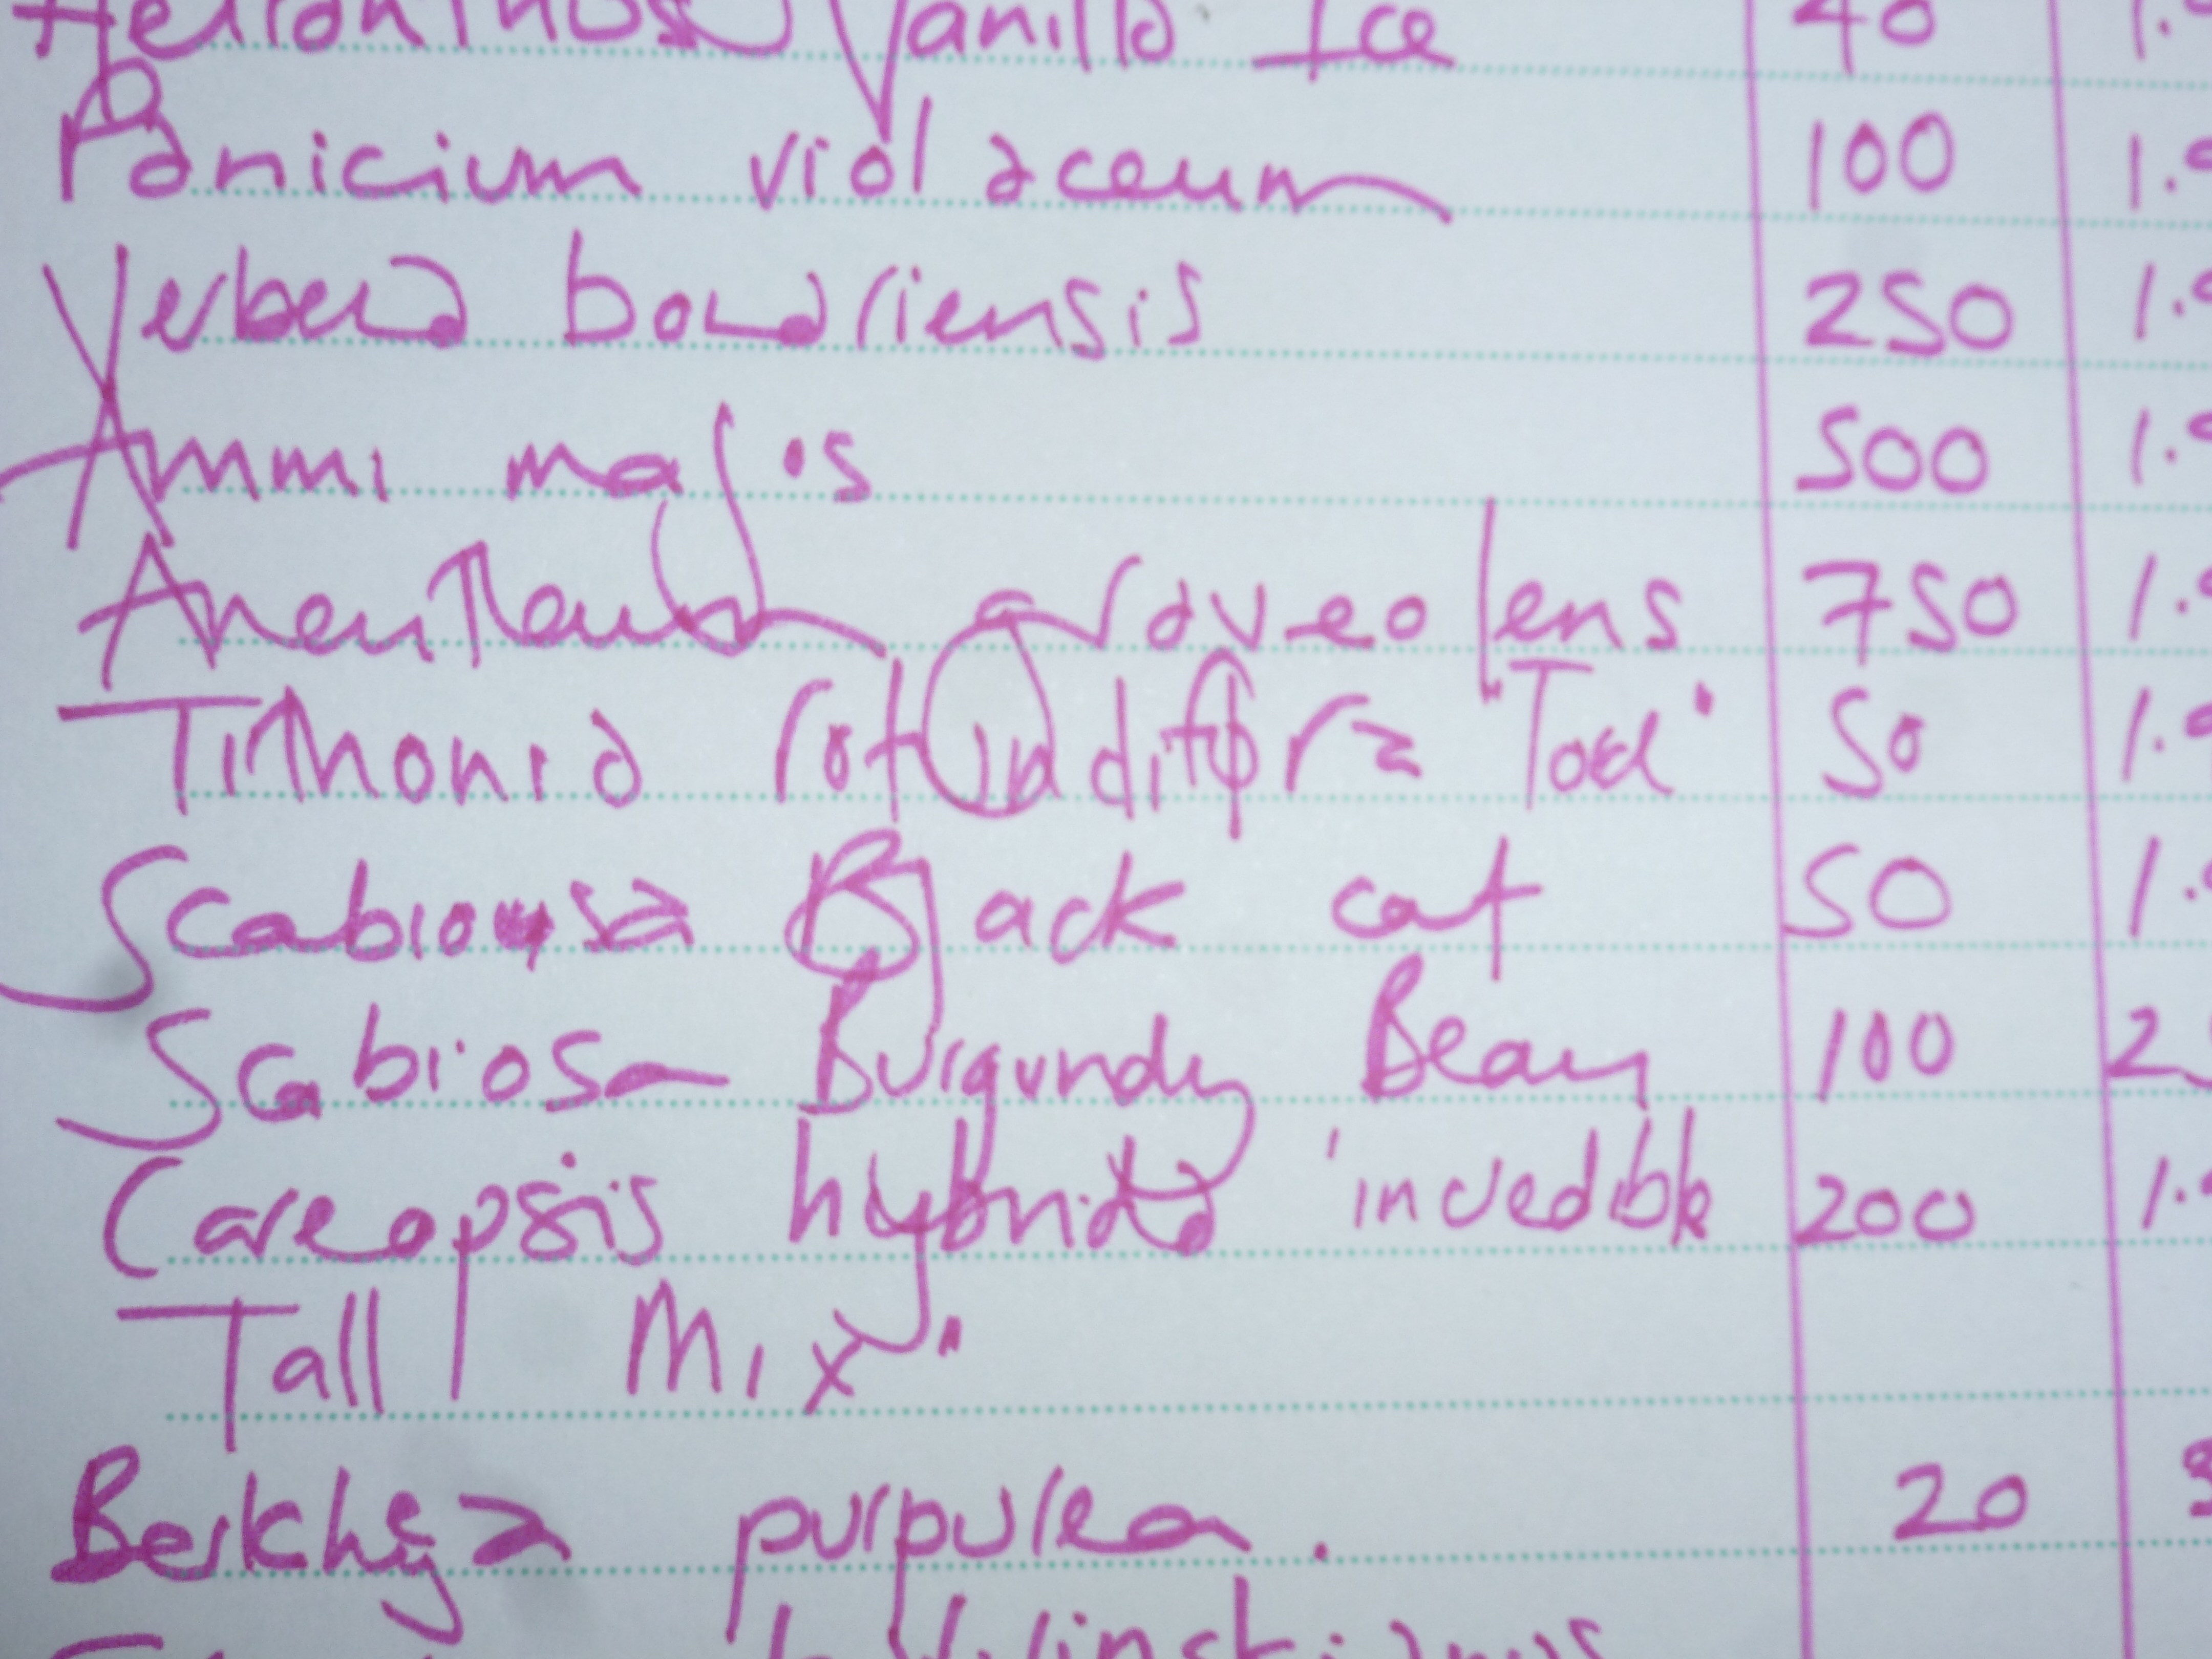 Helianthus Vanilla Ice 40 1.
Panicium violaceum 100 1.9
Verbena bonariensis 250 1.9
Ammi majus 500 1.9
graveolens 750 1.9
Tithonia rotundiflora 50 1.9
Scabiousa Black cat 50 1.9
Scabiosa Burgundy Beau 100 2
Careopsis hybrida 'incredible 200 1.9
Tall Mix'
Berkheya purpurea. 20 3